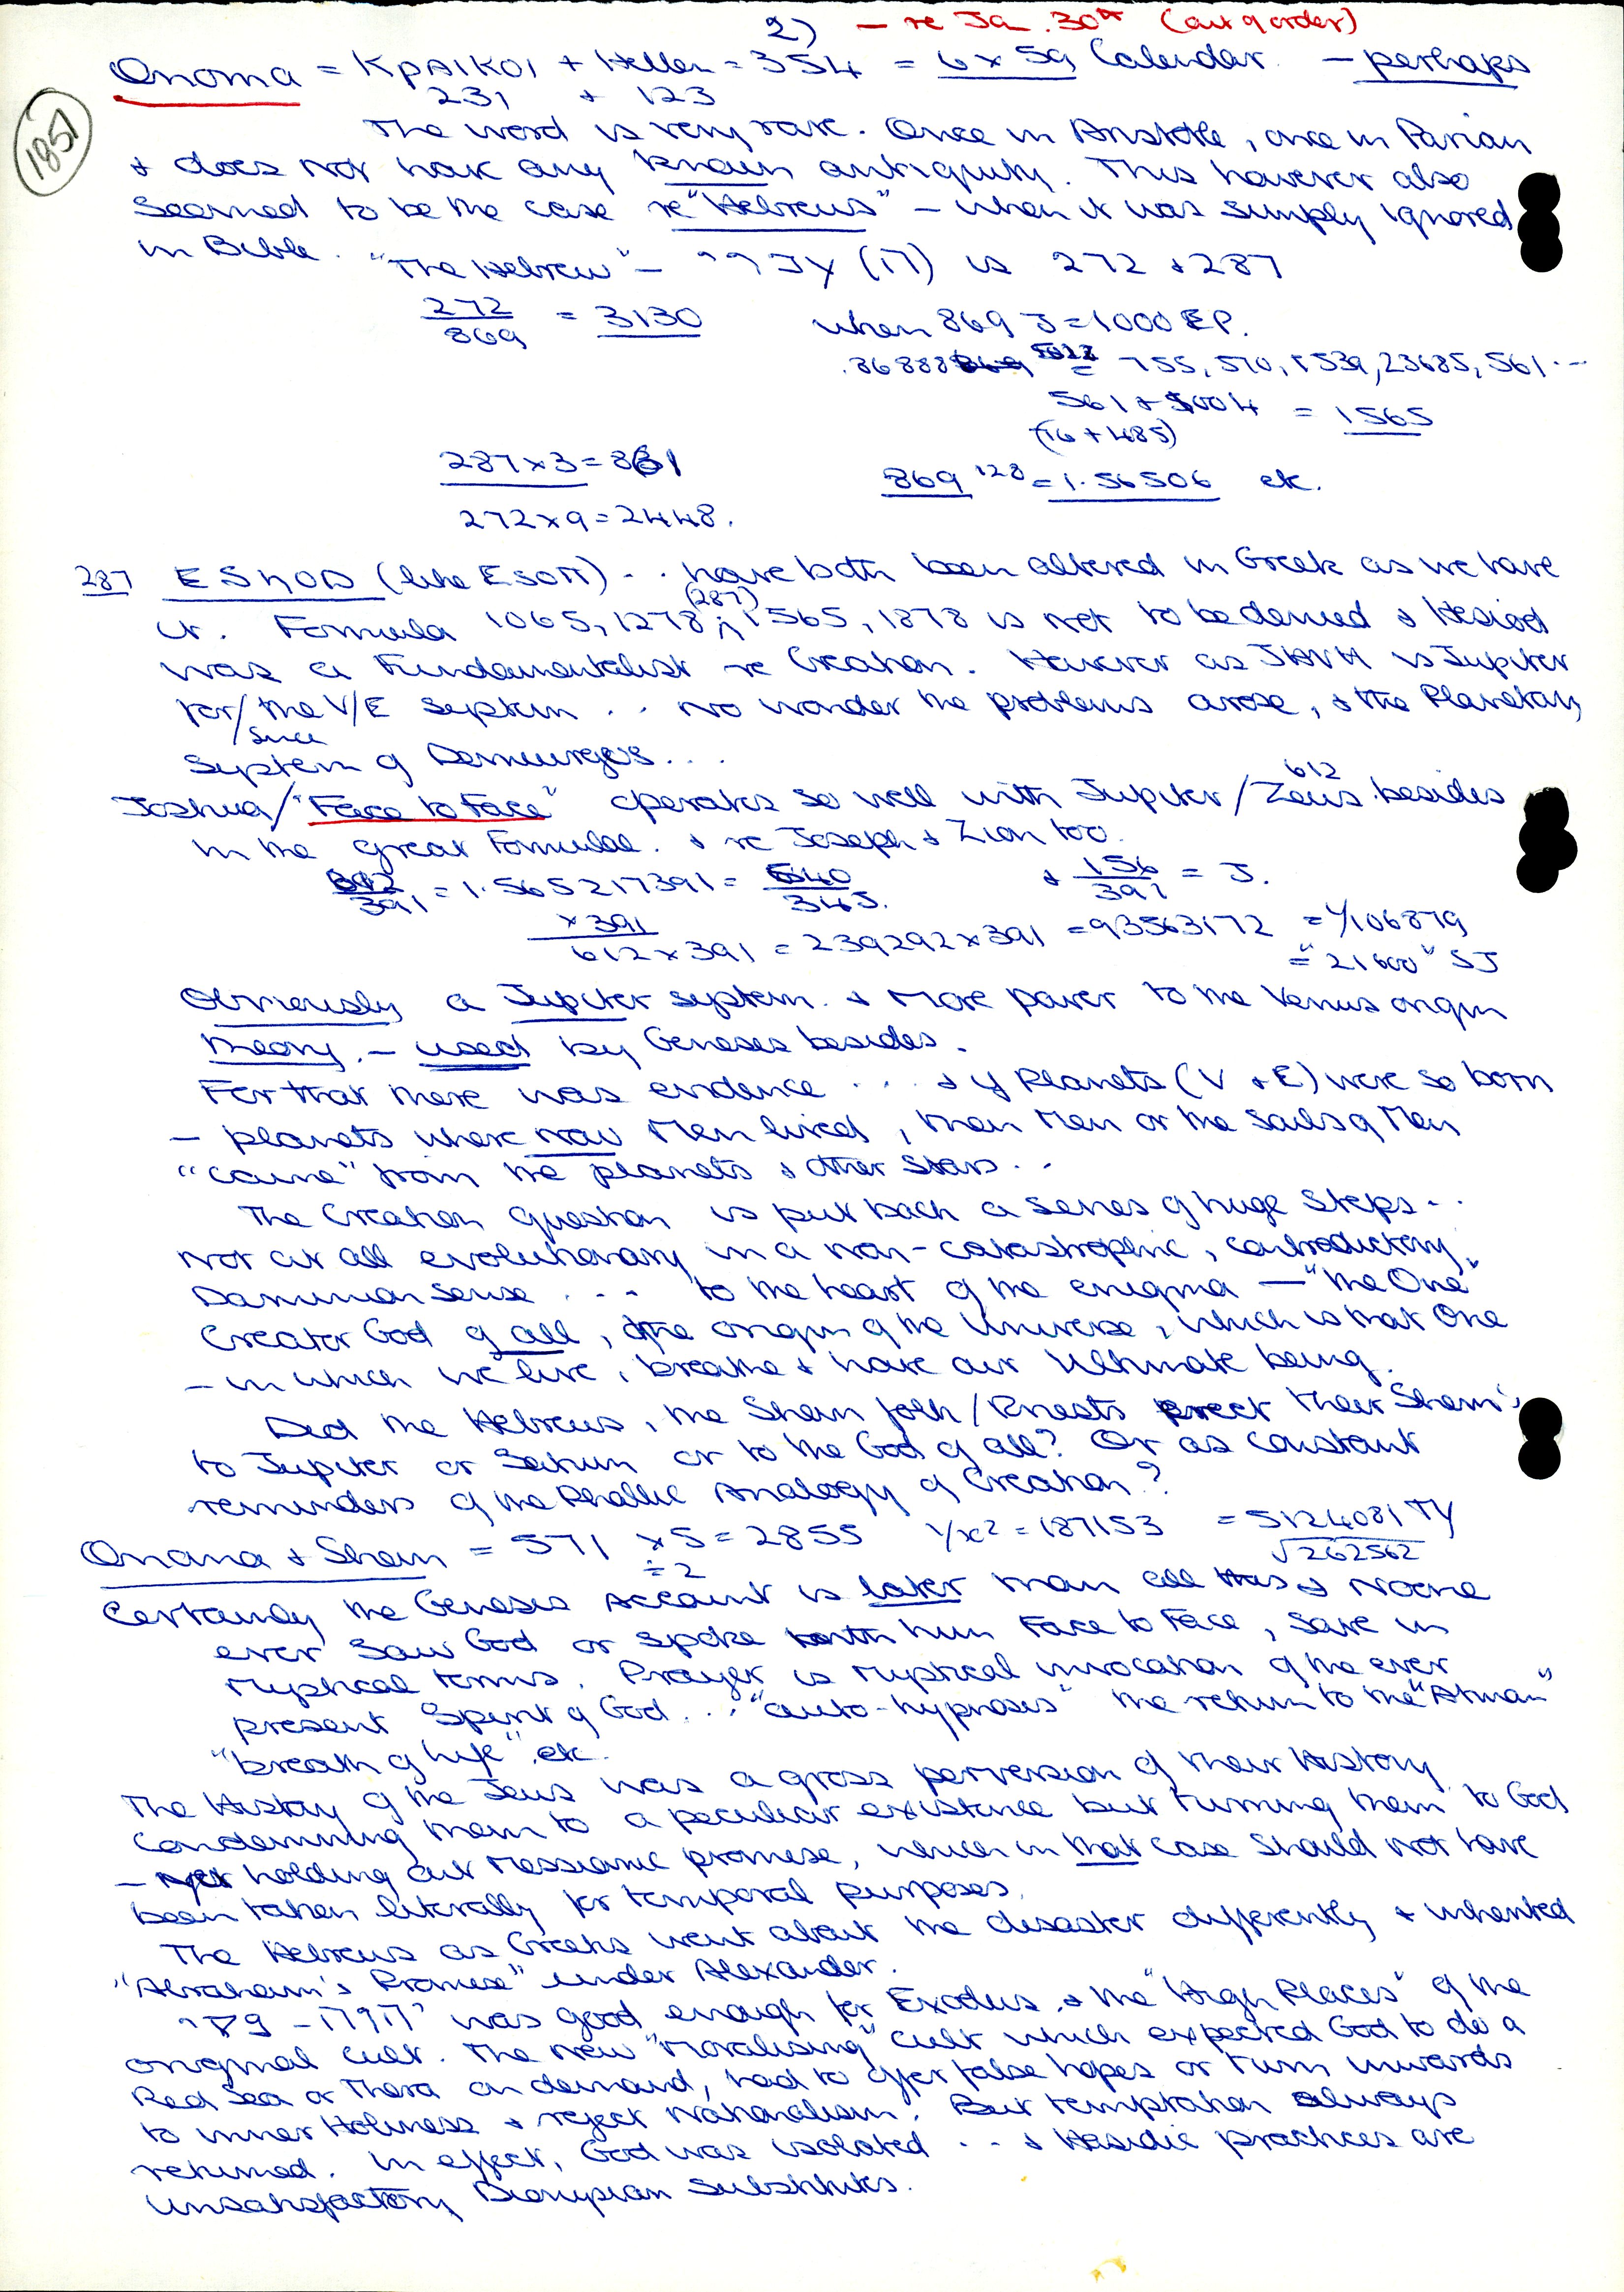 2) — re Ja. 30th (out of order)
Onoma = KPAIKOI + Hellen = 354 = 6 x 59 Calendar. — perhaps
231 + 123
1851
The word is very rare. Once in Aristotle, once in Parian
+ does not have any known antiquity. This however also
seemed to be the case re "Hebrews" – when it was simply ignored
in Bible. "The Hebrew" – (ה) is 272 + 287
272/869 = 3130 when 869 J = 1000 EP.
.86888 = 755, 570, 1539, 23685, 561 ...
561 + 1004 = 1565
(76 + 485)
287 x 3 = 861
869 128 = 1.56506 etc.
272 x 9 = 2448.
287 ESHOD (like ESOП) .. have both been altered in Greek as we have
it. Formula 1065, 1278, (287) 1565, 1878 is not to be denied + Hesiod
was a Fundamentalist re Creation. However as JHVH is Jupiter
for/since the V/E system .. no wonder the problems arose, + the Planetary
System of Demiurges...
Joshua/"Face to Face" operates so well with Jupiter/Zeus 612 besides
in the great Formulae. + re Joseph + Zion too.
612/391 = 1.565217391 = 540/345. + 156/391 = J.
x 391
612 x 391 = 239292 x 391 = 93563172 = 1/106879
= "21600" SJ
Obviously a Jupiter system. + More power to the Venus origin
theory. – used by Genesis besides.
For that there was evidence ... + if Planets (V + E) were so born
— planets where now Men lived, then Men or the Souls of Men
"came" from the planets + other Stars...
The Creation question is put back a series of huge steps...
not at all evolutionary in a non-catastrophic, contradictory,
Darwinian sense .... to the heart of the enigma — "the One"
Creator God of all, the origin of the Universe, which is that One
— in which we live, breathe + have our Ultimate being.
Did the Hebrews, the Shem folk/Priests erect their Shem's
to Jupiter or Saturn or to the God of all? Or as constant
reminders of the Phallic Analogy of Creation?
Onoma + Shem = 571 x 5 = 2855 1/x² = 187153 = 5124081 TY
÷ 2 √262562
Certainly the Genesis account is later than all this + Noone
ever saw God or spoke with him Face to Face, save in
mystical terms. Prayer is mystical invocation of the ever
present Spirit of God... "auto-hypnosis" the return to the "Atman"
"breath of life", etc.
The History of the Jews was a gross perversion of their History
condemning them to a peculiar existence but turning them to God
— yet holding out Messianic promise, which in that case should not have
been taken literally for temporal purposes.
The Hebrews as Greeks went about the disaster differently + inherited
"Abraham's Promise" under Alexander.
was good enough for Exodus, + the "High Places" of the
original cult. The new "Moralising" cult which expected God to do a
Red Sea or Thera on demand, had to offer false hopes or turn inwards
to inner Holiness + reject Nationalism. But temptation always
returned. In effect, God was isolated ... + Hasidic practices are
unsatisfactory Dionysian Substitutes.